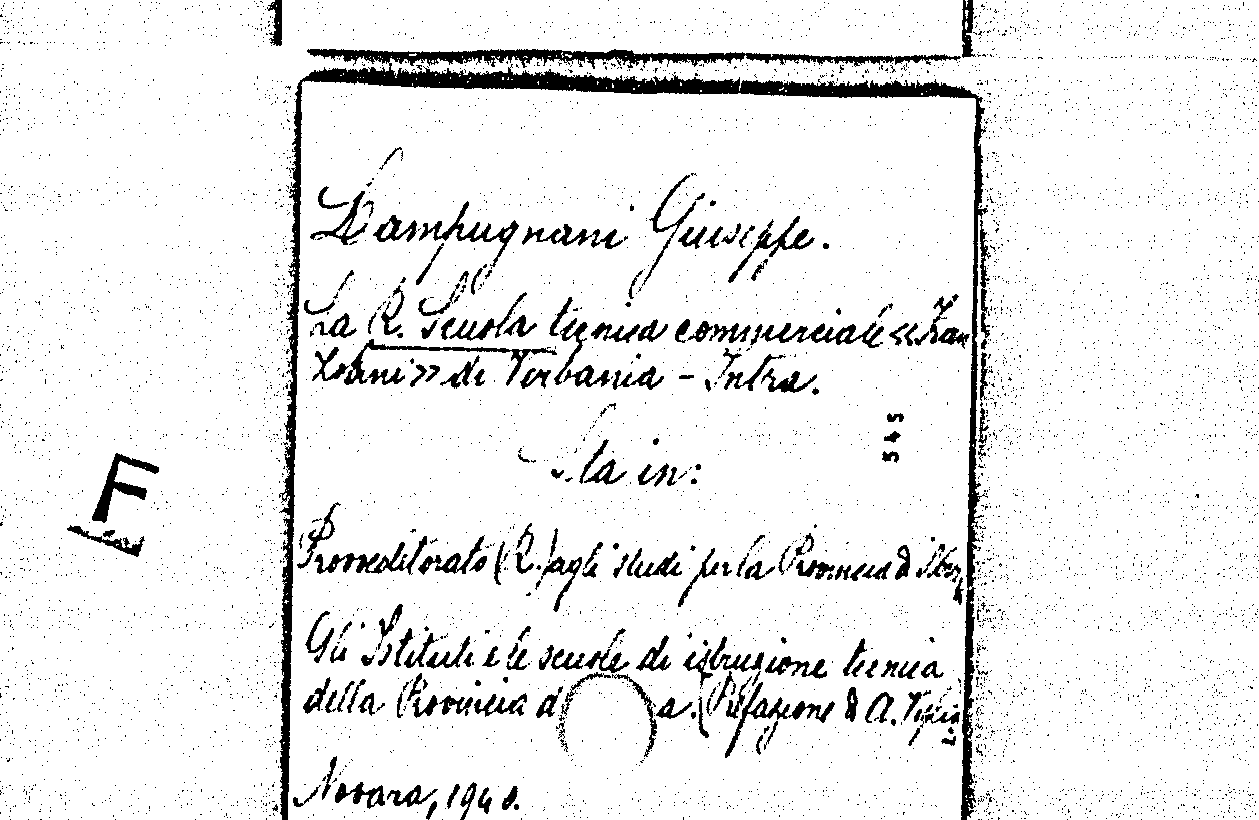 Lampugnani Giuseppe.
La R. Scuola tecnica commerciale «Fran
zosini» di Verbania - Intra.
545
Sta in:
F
Provveditorato (R.) agli studi per la Provincia di
Gli Istituti e le scuole di istruzione tecnica
della Provincia d a. (Prefazione di A.
Novara, 1940.